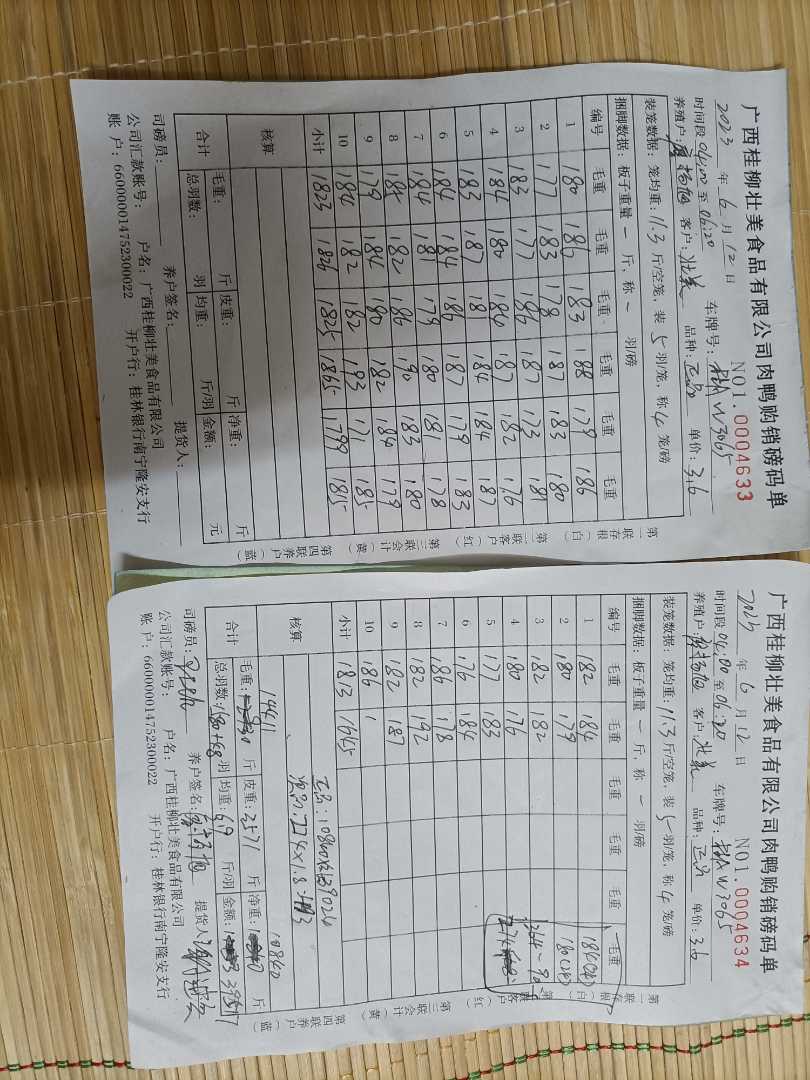 广西桂柳壮美食品有限公司肉鸭购销磅码单
NO1.0004633
2023 年 6 月 12 日 车牌号: W3065
时间段 04:00 至 06:20 客户: 品种: 正品 单价: 3.6
养殖户:
装笼数据: 笼均重: 11.3 斤/空笼, 装 5 羽/笼, 称 4 笼/磅
捆脚数据: 板子重量 一 斤, 称 一 羽/磅
编号 毛重 毛重 毛重 毛重 毛重 毛重
1 180 186 183 188 179 186
2 177 183 178 187 183 180
3 183 177 186 187 173 181
4 184 180 186 187 182 176
5 183 187 181 184 184 187
6 184 184 186 187 179 183
7 184 181 179 180 181 178
8 185 182 186 190 183 180
9 179 184 180 182 184 179
10 184 182 182 193 171 185
小计 1823 1826 1825 1865 1799 1815
核算
合计 毛重: 斤 皮重: 斤 净重: 斤
总羽数: 羽 均重: 斤/羽 金额: 元
司磅员: 养户签名: 提货人:
公司汇款账号: 户名: 广西桂柳壮美食品有限公司
账 户: 660000014752300022 开户行: 桂林银行南宁隆安支行
第一联存根(白) 第二联客户(红) 第三联会计(黄) 第四联养户(蓝)
广西桂柳壮美食品有限公司肉鸭购销磅码单
NO1.0004634
2023 年 6 月 12 日 车牌号: W3065
时间段 04:00 至 06:20 客户: 品种: 正品 单价: 3.6
养殖户:
装笼数据: 笼均重: 11.3 斤/空笼, 装 5 羽/笼, 称 4 笼/磅
捆脚数据: 板子重量 一 斤, 称 一 羽/磅
编号 毛重 毛重 毛重 毛重 毛重 毛重
1 182 184
2 180 179
3 182 182
4 180 176
5 177 183
6 176 184
7 186 178
8 182 192
9 182 187
10 186
小计 1813 1645
核算
合计 毛重: 14411 斤 皮重: 3571 斤 净重: 10840 斤
总羽数: 羽 均重: 6.9 斤/羽 金额: 元
司磅员: 养户签名: 提货人:
公司汇款账号: 户名: 广西桂柳壮美食品有限公司
账 户: 660000014752300022 开户行: 桂林银行南宁隆安支行
第一联存根(白) 第二联客户(红) 第三联会计(黄) 第四联养户(蓝)